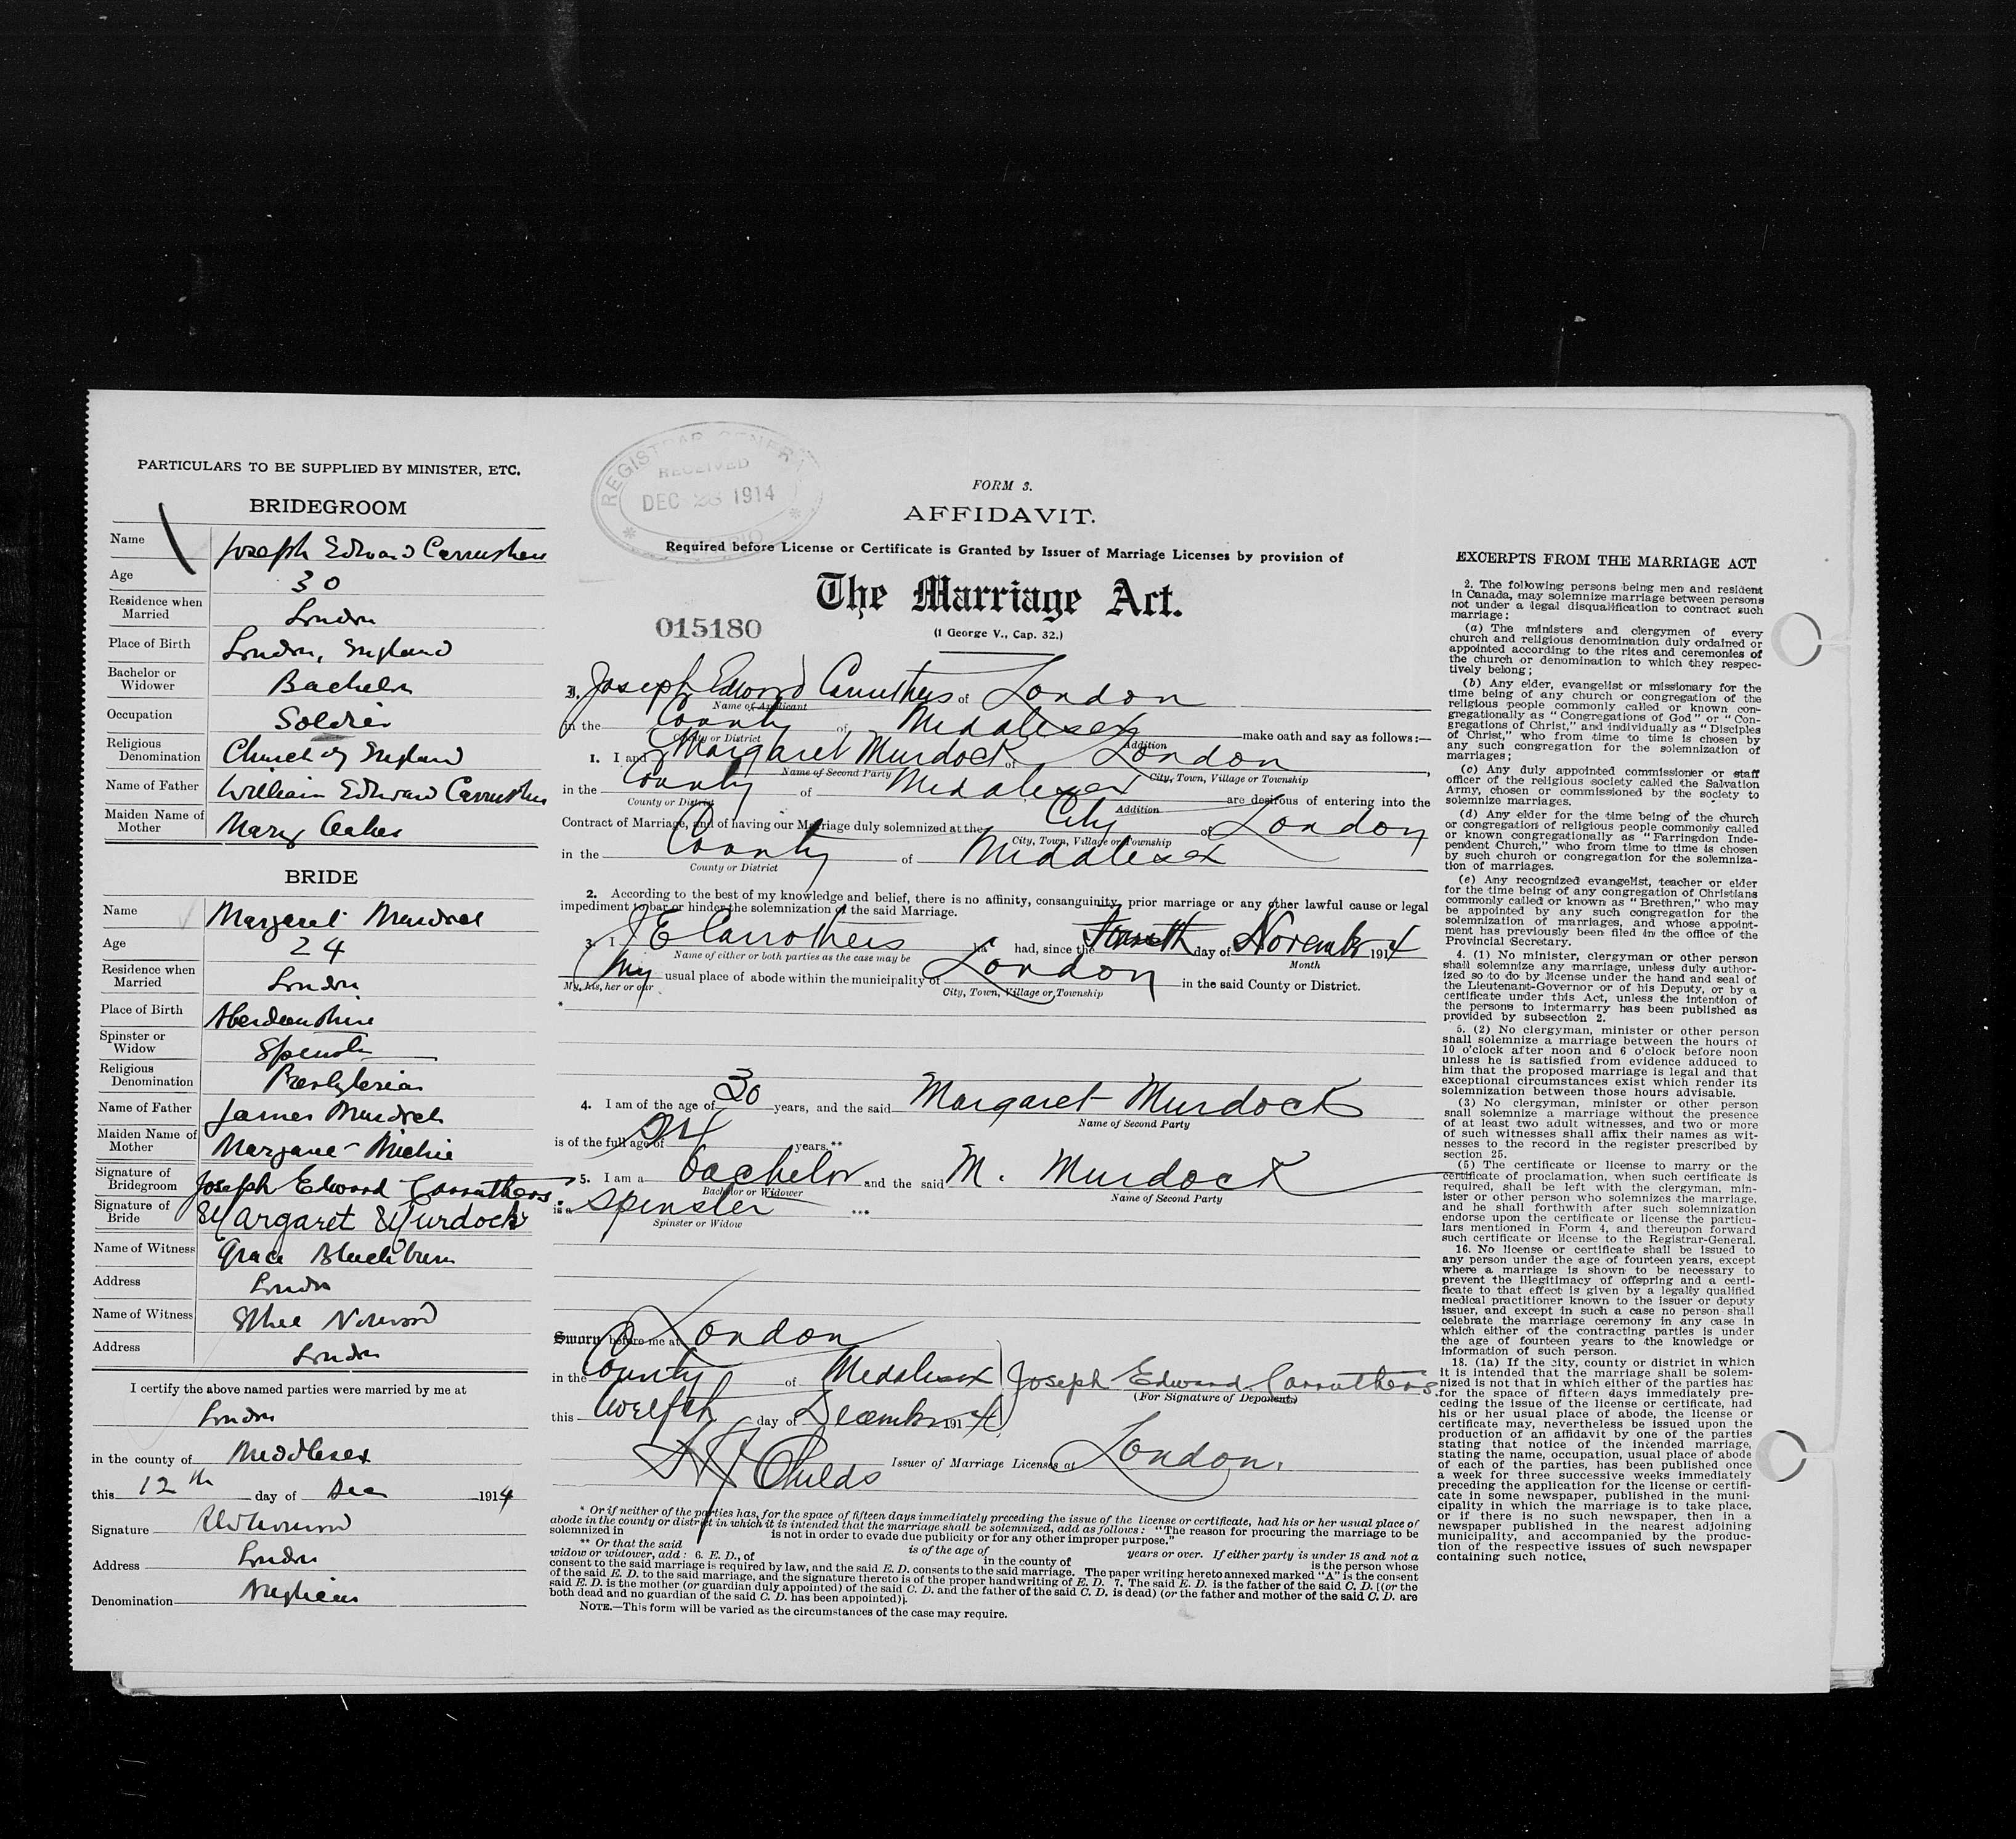 PARTICULARS TO BE SUPPLIED BY MINISTER, ETC.
BRIDEGROOM
Name Joseph Edward Carruthers
Age 30
Residence when Married London
Place of Birth London, England
Bachelor or Widower Bachelor
Occupation Soldier
Religious Denomination Church of England
Name of Father William Edward Carruthers
Maiden Name of Mother Mary Oakes
BRIDE
Name Margaret Murdock
Age 24
Residence when Married London
Place of Birth Aberdeenshire
Spinster or Widow Spinster
Religious Denomination Presbyterian
Name of Father James Murdock
Maiden Name of Mother Margaret Michie
Signature of Bridegroom Joseph Edward Carruthers.
Signature of Bride Margaret Murdock
Name of Witness Grace Blackburn
Address London
Name of Witness Ethel Norwood
Address London
I certify the above named parties were married by me at
London
in the county of Middlesex
this 12th day of Dec 1914
Signature
Address London
Denomination Anglican
REGISTRAR GENERAL
RECEIVED
DEC 1914
ONTARIO
FORM 3.
AFFIDAVIT.
Required before License or Certificate is Granted by Issuer of Marriage Licenses by provision of
The Marriage Act.
(1 George V., Cap. 32.)
015180
I, Joseph Edward Carruthers of London
Name of Applicant
in the County of Middlesex make oath and say as follows:—
County or District Addition
1. I and Margaret Murdock of London
Name of Second Party City, Town, Village or Township
in the County of Middlesex are desirous of entering into the
County or District Addition
Contract of Marriage, and of having our Marriage duly solemnized at the City of London
City, Town, Village or Township
in the County of Middlesex
County or District
2. According to the best of my knowledge and belief, there is no affinity, consanguinity, prior marriage or any other lawful cause or legal
impediment to bar or hinder the solemnization of the said Marriage.
3. I J E Carrothers ha had, since the Fourth day of November 1914
Name of either or both parties as the case may be Month
My usual place of abode within the municipality of London in the said County or District.
My, his, her or our City, Town, Village or Township
*
4. I am of the age of 30 years, and the said Margaret Murdock
Name of Second Party
is of the full age of 24 years.**
5. I am a bachelor and the said M. Murdock
Bachelor or Widower Name of Second Party
is a spinster ***
Spinster or Widow
Sworn before me at London
in the County of Middlesex Joseph Edward Carruthers.
(For Signature of Deponents)
this twelfth day of December 1914
Childs Issuer of Marriage Licenses at London.
* Or if neither of the parties has, for the space of fifteen days immediately preceding the issue of the license or certificate, had his or her usual place of
abode in the county or district in which it is intended that the marriage shall be solemnized, add as follows: "The reason for procuring the marriage to be
solemnized in is not in order to evade due publicity or for any other improper purpose."
** Or that the said is of the age of years or over. If either party is under 18 and not a
widow or widower, add: 6. E. D., of in the county of is the person whose
consent to the said marriage is required by law, and the said E. D. consents to the said marriage. The paper writing hereto annexed marked "A" is the consent
of the said E. D. to the said marriage, and the signature thereto is of the proper handwriting of E. D. 7. The said E. D. is the father of the said C. D. [(or the
said E. D. is the mother (or guardian duly appointed) of the said C. D. and the father of the said C. D. is dead) (or the father and mother of the said C. D. are
both dead and no guardian of the said C. D. has been appointed)].
NOTE.—This form will be varied as the circumstances of the case may require.
EXCERPTS FROM THE MARRIAGE ACT
2. The following persons being men and resident
in Canada, may solemnize marriage between persons
not under a legal disqualification to contract such
marriage:
(a) The ministers and clergymen of every
church and religious denomination duly ordained or
appointed according to the rites and ceremonies of
the church or denomination to which they respec-
tively belong;
(b) Any elder, evangelist or missionary for the
time being of any church or congregation of the
religious people commonly called or known con-
gregationally as "Congregations of God" or "Con-
gregations of Christ," and individually as "Disciples
of Christ," who from time to time is chosen by
any such congregation for the solemnization of
marriages;
(c) Any duly appointed commissioner or staff
officer of the religious society called the Salvation
Army, chosen or commissioned by the society to
solemnize marriages.
(d) Any elder for the time being of the church
or congregation of religious people commonly called
or known congregationally as "Farringdon Inde-
pendent Church," who from time to time is chosen
by such church or congregation for the solemniza-
tion of marriages.
(e) Any recognized evangelist, teacher or elder
for the time being of any congregation of Christians
commonly called or known as "Brethren," who may
be appointed by any such congregation for the
solemnization of marriages, and whose appoint-
ment has previously been filed in the office of the
Provincial Secretary.
4. (1) No minister, clergyman or other person
shall solemnize any marriage, unless duly author-
ized so to do by license under the hand and seal of
the Lieutenant-Governor or of his Deputy, or by a
certificate under this Act, unless the intention of
the persons to intermarry has been published as
provided by subsection 2.
5. (2) No clergyman, minister or other person
shall solemnize a marriage between the hours of
10 o'clock after noon and 6 o'clock before noon
unless he is satisfied from evidence adduced to
him that the proposed marriage is legal and that
exceptional circumstances exist which render its
solemnization between those hours advisable.
(3) No clergyman, minister or other person
shall solemnize a marriage without the presence
of at least two adult witnesses, and two or more
of such witnesses shall affix their names as wit-
nesses to the record in the register prescribed by
section 25.
(5) The certificate or license to marry or the
certificate of proclamation, when such certificate is
required, shall be left with the clergyman, min-
ister or other person who solemnizes the marriage,
and he shall forthwith after such solemnization
endorse upon the certificate or license the particu-
lars mentioned in Form 4, and thereupon forward
such certificate or license to the Registrar-General.
16. No license or certificate shall be issued to
any person under the age of fourteen years, except
where a marriage is shown to be necessary to
prevent the illegitimacy of offspring and a certi-
ficate to that effect is given by a legally qualified
medical practitioner known to the issuer or deputy
issuer, and except in such a case no person shall
celebrate the marriage ceremony in any case in
which either of the contracting parties is under
the age of fourteen years to the knowledge or
information of such person.
18. (1a) If the city, county or district in which
it is intended that the marriage shall be solem-
nized is not that in which either of the parties has
for the space of fifteen days immediately pre-
ceding the issue of the license or certificate, had
his or her usual place of abode, the license or
certificate may, nevertheless be issued upon the
production of an affidavit by one of the parties
stating that notice of the intended marriage,
stating the name, occupation, usual place of abode
of each of the parties, has been published once
a week for three successive weeks immediately
preceding the application for the license or certifi-
cate in some newspaper, published in the muni-
cipality in which the marriage is to take place,
or if there is no such newspaper, then in a
newspaper published in the nearest adjoining
municipality, and accompanied by the produc-
tion of the respective issues of such newspaper
containing such notice.